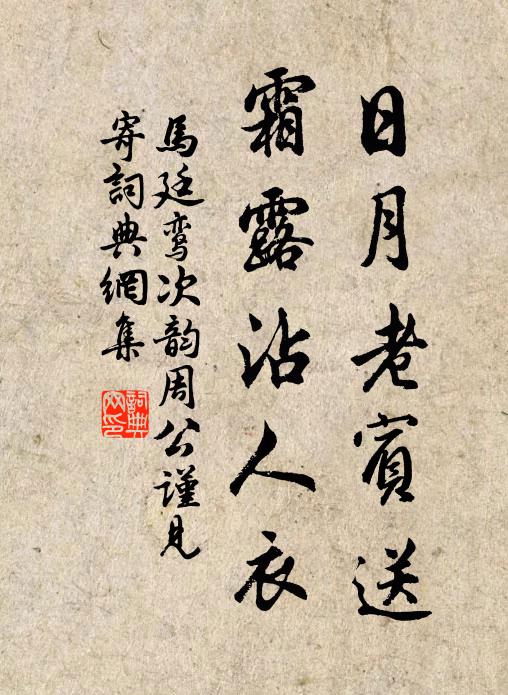 日月老賓送
霜露沾人衣
馬廷鸞次韵周公謹見
寄詞典網集
詞典
网印